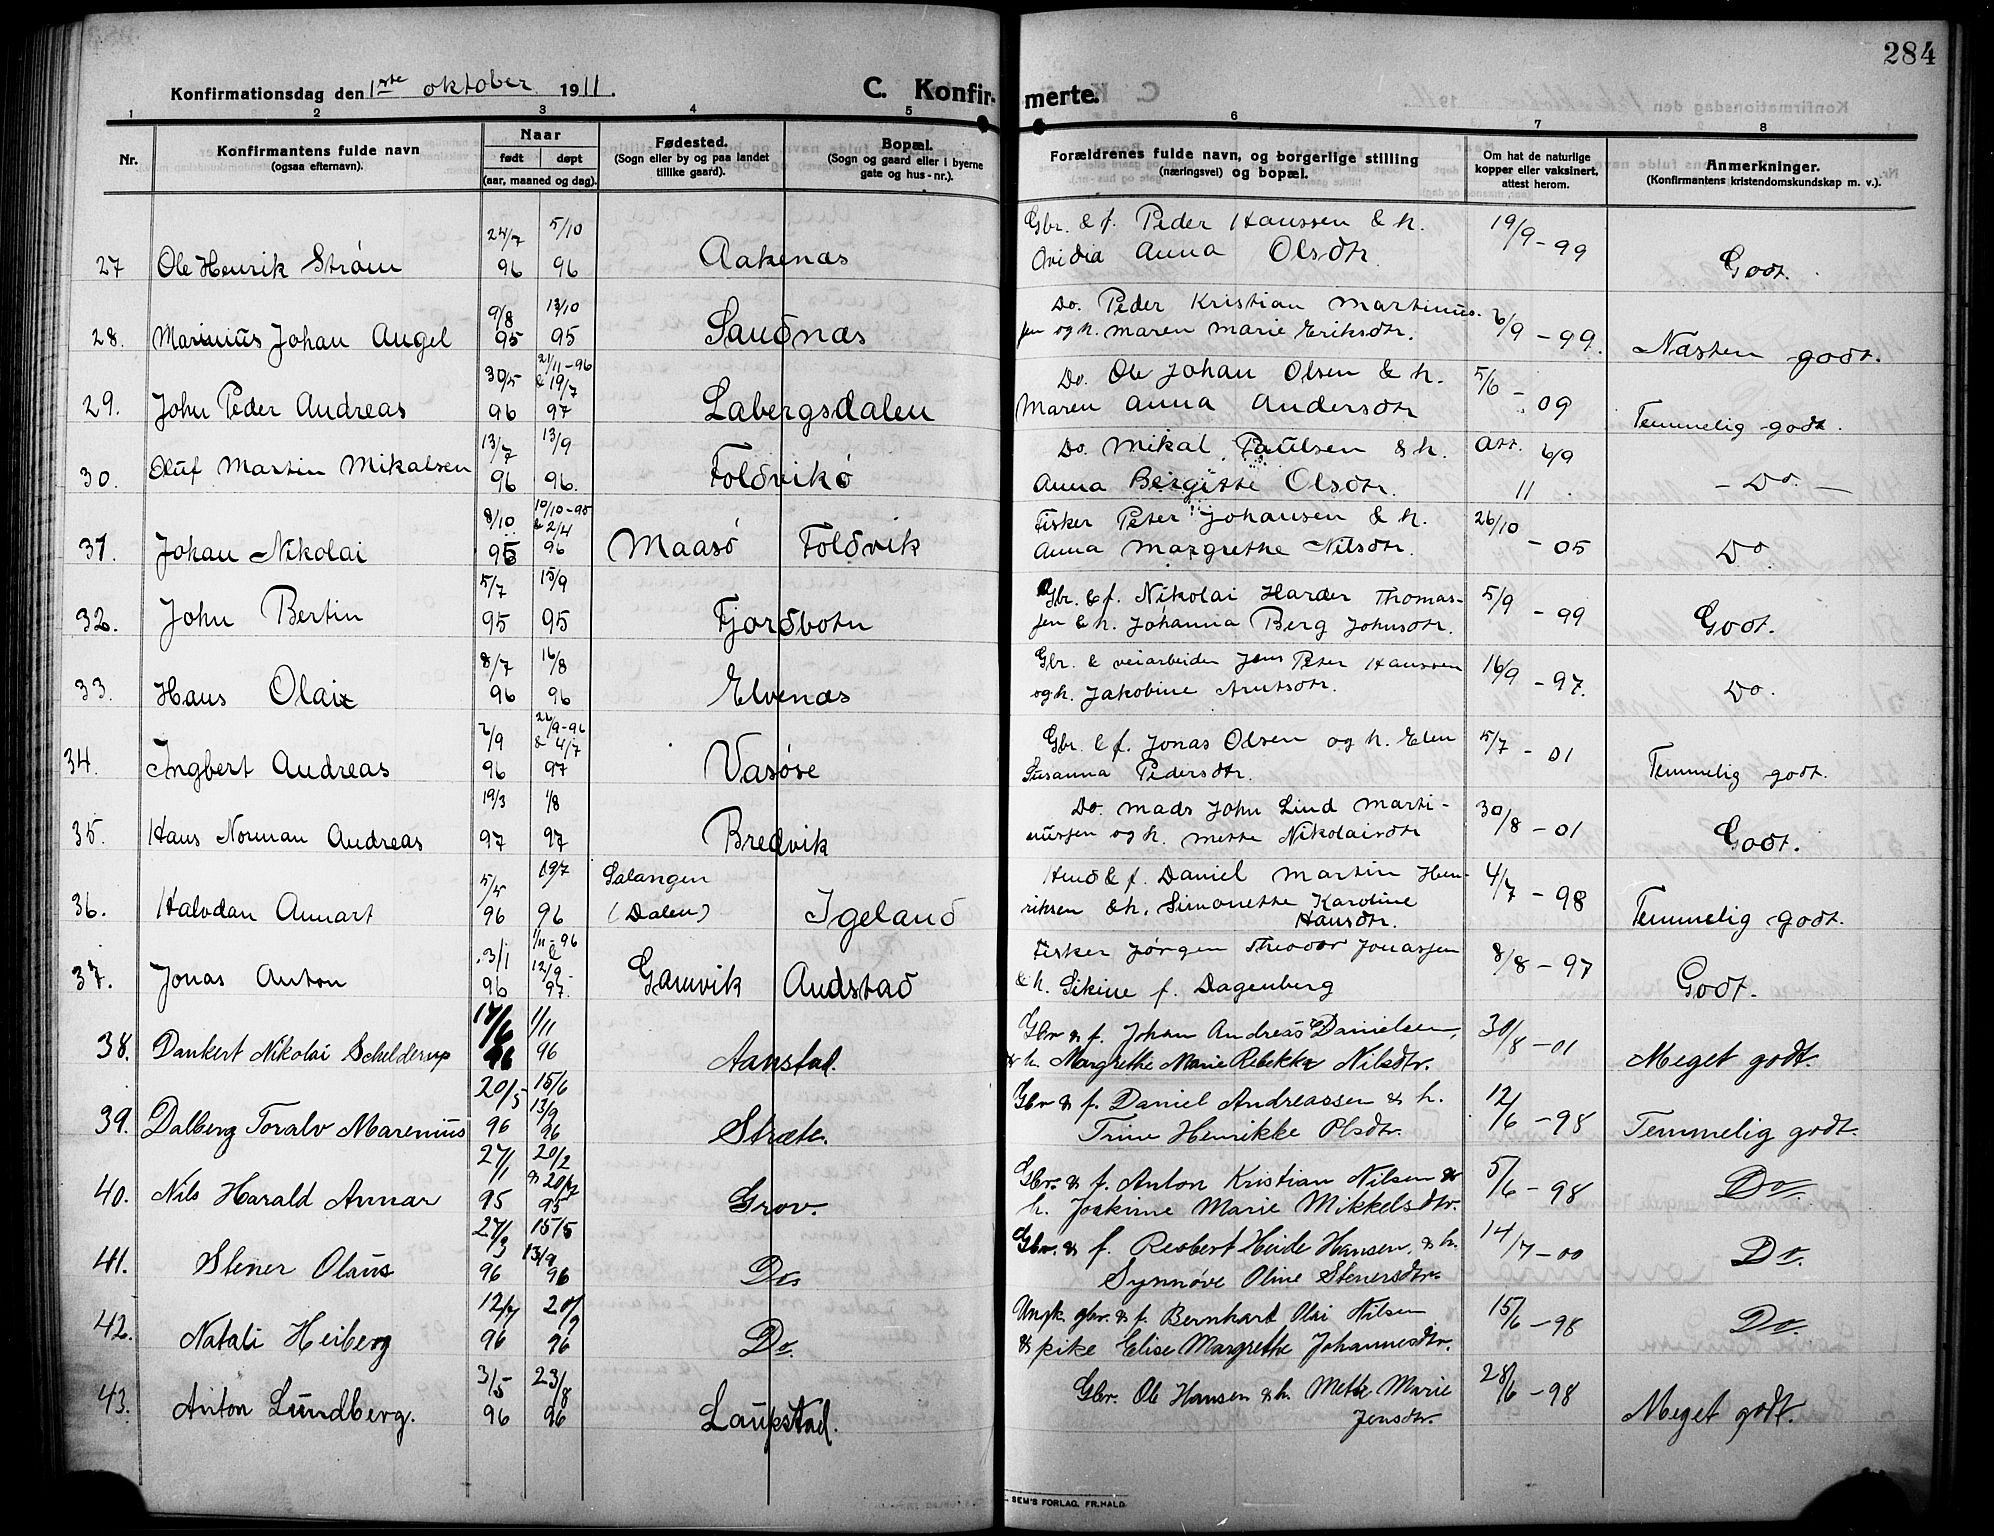 284
Konfirmationsdag den 1ste oktober 1911. C. Konfirmerte.
1 2 3 4 5 6 7 8
Nr. Konfirmantens fulde navn (ogsaa efternavn). Naar født døpt (aar, maaned og dag). Fødested. (Sogn eller by og paa landet tillike gaard). Bopæl. (Sogn og gaard eller i byerne gate og hus-nr.). Forældrenes fulde navn, og borgerlige stilling (næringsvei) og bopæl. Om hat de naturlige kopper eller vaksinert, attest herom. Anmerkninger. (Konfirmantens kristendomskundskap m. v.).
24/7 5/10 Gbr. & f. Peder Hanssen & h. 19/9-99
27 Ole Henrik Strøm 96 96 Aakenæs Ovidia Anna Olsdtr. Godt.
9/8 13/10 Do. Peder Kristian Martinus-
28. Marinius Johan Angel 95 95 Sandnæs sen og h. Maren Marie Eriksdtr. 6/9-99. Næsten godt.
30/5 21/11-96 & 19/7 Do. Ole Johan Olsen & h. 5/6-09
29. John Peder Andreas 96 97 Labergsdalen Maren Anna Andersdtr Temmelig godt.
13/7 13/9 Do. Mikal Paulsen & h. Att. 6/9
30. Oluf Martin Mikalsen 96 96. Foldvikø Anna Bergitte Olsdtr. 11. - Do. -
8/10 10/10-95 & 2/4 Fisker Peter Johansen & h. 26/10-05
31. Johan Nikolai 95 96 Maasø Foldvik Anna Margrethe Nilsdtr. Do.
5/7 15/9 Gbr. & f. Nikolai Harder Thomas- 5/9-99
32. John Bertin 95 95 Fjordbotn sen & h. Johanna Berg Johnsdtr. Godt.
8/7 16/8 Gbr. & veiarbeider Jens Peter Hanssen 16/9-97.
33. Hans Olai 96 96 Elvenæs og h. Jakobine Arntsdtr. Do.
6/9 26/9-96 & 4/7 Gbr. & f. Jonas Olsen og h. Elen 5/7-01
34. Ingbert Andreas 96 97 Vasøse Susanna Pedersdtr. Temmelig godt.
19/3 1/8 Do. Mads John Lind Marti- 30/8-01
35. Hans Norman Andreas 97 97 Bredvik nussen og h. Mette Nikolaisdtr Godt.
5/5 19/7 Salangen Hmd & f. Daniel Martin Hen- 4/7-98
36. Halvdan Annart 96 96 (Dalen) Igeland riksen & h. Simonette Karoline Hansdtr. Temmelig godt.
3/1 1/11-96 & Fisker Jørgen Theodor Jonassen 8/8-97
37. Jonas Anton 96 12/9-97. Gamvik Andstad & h. Sikine f. Dagenberg Godt.
17/6 1/11 Gbr & f. Johan Andreas Danielsen, 30/8-01
38. Dankert Nikolai Schelderup 96 96 Aanstad. & h. Margrethe Marie Rebekka Nilsdtr. Meget godt.
20/5 15/6 Gbr & f. Daniel Andreassen & h. 12/6-98
39. Dalberg Toralv Marenius 96 13/9 96 Stræte. Trine Henrikke Olsdtr. Temmelig godt.
27/1 20/2 Gbr. & f. Anton Kristian Nilsen & 5/6-98
40. Nils Harald Annar 95 95 Grov. h. Joakime Marie Mikkelsdtr. Do.
27/3 15/5 Gbr. & f. Resbert Heide Hansen, & h. 14/7-00
41. Stener Olaus 96 13/9 96 Do Synnøve Oline Stenersdtr. Do.
12/7 20/9 Ungk. gbr. & f. Bernhart Olai Nilsen 15/6-98
42. Natali Heiberg 96 96 Do. & pike Elise Margrethe Johannesdtr. Do.
3/5 23/8 Gbr. Ole Hansen & h. Mette Marie 28/6-98
43. Anton Lundberg. 96 96 Laupstad. Jensdtr. Meget godt.
SEM'S FORLAG, FR.HALD.